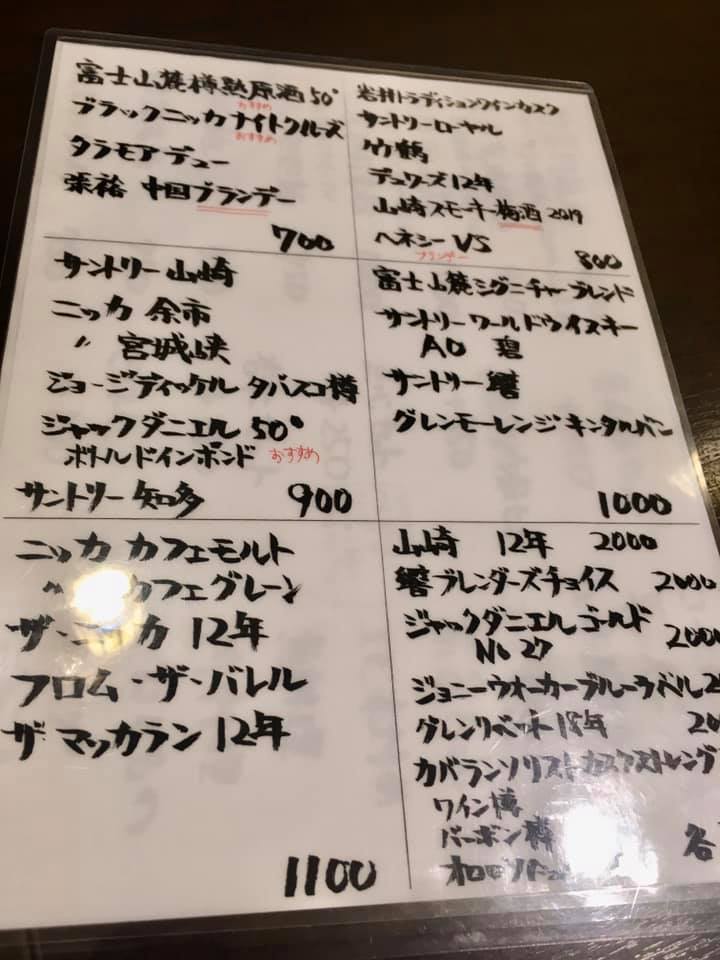 富士山麓樽熟原酒50°
おすすめ
ブラックニッカナイトクルーズ
おすすめ
タラモアデュー
張裕 中国ブランデー
700
岩井トラディションワインカスク
サントリーローヤル
竹鶴
デュワーズ12年
山崎スモーキー梅酒2019
ヘネシーVS
ブランデー
800
サントリー山崎
ニッカ 余市
〃 宮城峡
ジョージディッケル タバスコ樽
ジャックダニエル50°
ボトルドインボンド おすすめ
サントリー知多 900
富士山麓シグニチャーブレンド
サントリーワールドウイスキー
AO 碧
サントリー響
グレンモーレンジ キンタルバン
1000
ニッカ カフェモルト
〃 カフェグレーン
ザ・ニッカ 12年
フロム・ザ・バレル
ザ マッカラン 12年
1100
山崎 12年 2000
響ブレンダーズチョイス 2000
ジャックダニエルゴールド
No27 2000
ジョニーウォーカーブルーラベル
グレンリベット18年
カバランソリストカスクストレング
ワイン樽
バーボン樽 各
オロロソ